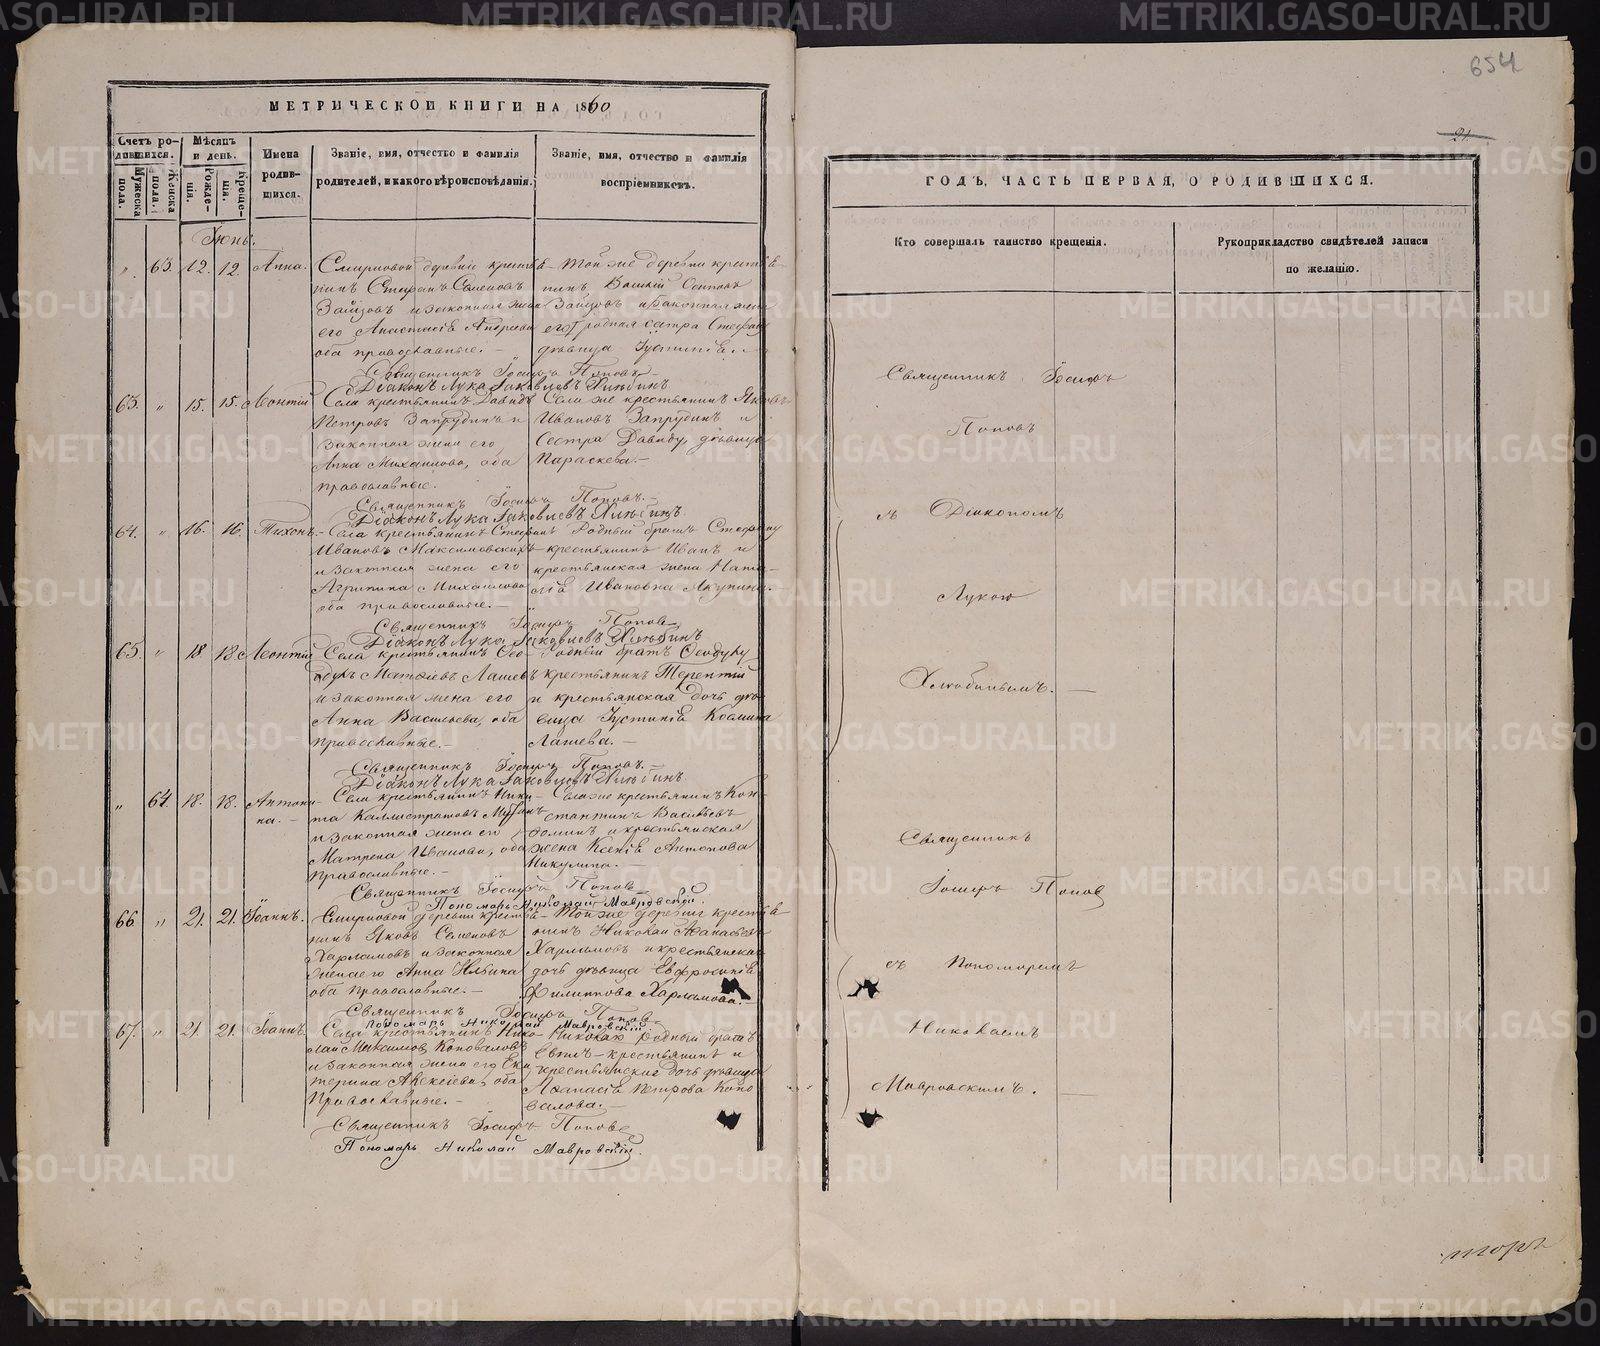 654
21.
МЕТРИЧЕСКОЙ КНИГИ НА 1860
Счетъ родившихся.
Мужеска пола.
Женска пола.
Мѣсяцъ и день.
Рожденія.
Крещенія.
Имена родившихся.
Званіе, имя, отчество и фамилія родителей, и какого вѣроисповѣданія.
Званіе, имя, отчество и фамилія воспріемниковъ.
Іюнь.
„ 63. 12. 12. Анна.
Смирновой деревни крестья-
нинъ Стефанъ Семеновъ
Зайцовъ и законная жена
его Анастасія Андреева
оба православные.
Той же деревни крестья-
нинъ Осиповъ
Зайцовъ и
родная сестра
дѣвица Іустинія.
Священникъ Іосифъ Поповъ
Діаконъ Лука Іаковлевъ Хлѣбинъ
63. „ 15. 15. Леонтій
Села крестьянинъ Давидъ
Петровъ Запрудинъ и
законная жена его
Анна Михайлова, оба
православные.
Села же крестьянинъ Яковъ
Ивановъ Запрудинъ и
Сестра Давиду, дѣвица
Параскева.
Священникъ Іосифъ Поповъ.
Діаконъ Лука Іаковлевъ Хлѣбинъ
64. „ 16. 16. Тихонъ.
Села крестьянинъ Стефанъ
Ивановъ Максимовскихъ
и законная жена его
Агрипина Михайлова
оба православные.
Родный братъ Стефану
крестьянинъ Иванъ и
крестьянская жена Ната-
лія Ивановна
Священникъ Іосифъ Поповъ
Діаконъ Лука Іаковлевъ Хлѣбинъ
65. „ 18 18. Леонтій
Села крестьянинъ Ѳео-
дулъ Матѳіевъ Лашевъ
и законная жена его
Анна Васильева, оба
православные.
Родный братъ Ѳеодулу
крестьянинъ Терентій
и крестьянская дочь дѣ-
вица Іустинія Козмина
Лашева.
Священникъ Іосифъ Поповъ.
Діаконъ Лука Іаковлевъ Хлѣбинъ
„ 64. 18. 18. Антони-
на.
Села крестьянинъ Ники-
та Каллистратовъ
и законная жена его
Матрена Иванова, оба
православные.
Села же крестьянинъ Кон-
стантинъ Васильевъ
и крестьянская
жена Ксенія Антонова
Никулина.
Священникъ Іосифъ Поповъ
Пономарь Николай Мавровскій.
66. „ 21. 21. Іоаннъ.
Смирновой деревни крестья-
нинъ Яковъ Семеновъ
Харламовъ и законная
жена его Анна Ильина
оба православные.
Той же деревни крестья-
нинъ Николай Аѳанасьевъ
Харламовъ и крестьянская
дочь дѣвица Евфросинія
Филиппова Харламова.
Священникъ Іосифъ Поповъ
Пономарь Николай Мавровскій
67. „ 21. 21. Іоаннъ.
Села крестьянинъ Нико-
лай Максимовъ Коноваловъ
и законная жена его Ека-
терина Алексіева, оба
православные.
Николаю родный братъ
крестьянинъ и
крестьянская дочь дѣвица
Аѳанасія Петрова Коно-
валова.
Священникъ Іосифъ Поповъ
Пономарь Николай Мавровскій.
ГОДЪ, ЧАСТЬ ПЕРВАЯ, О РОДИВШИХСЯ.
Кто совершалъ таинство крещенія.
Рукоприкладство свидѣтелей записи по желанію.
Священникъ Іосифъ
Поповъ
съ Діакономъ
Лукою
Хлѣбинымъ.
Священникъ
Іосифъ Поповъ
съ Пономаремъ
Николаемъ
Мавровскимъ.
METRIKI.GASO-URAL.RU